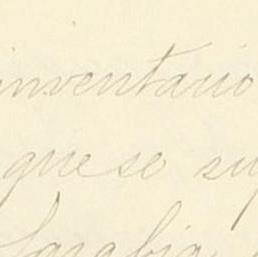 inventario
que se su
Sarabia